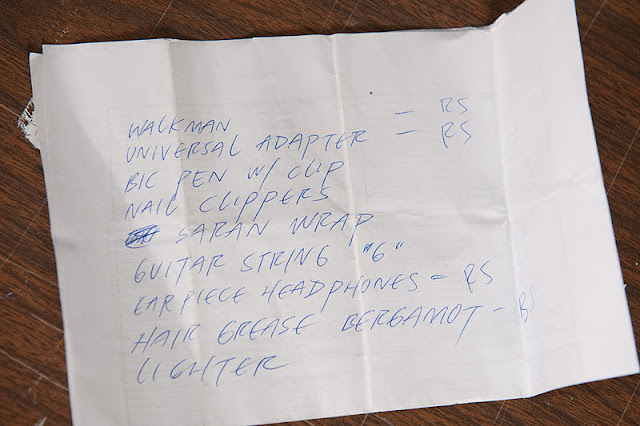 WALKMAN — RS
UNIVERSAL ADAPTER — RS
BIC PEN W/ CLIP
NAIL CLIPPERS
SARAN WRAP
GUITAR STRING "6"
EAR PIECE HEADPHONES = RS
HAIR GREASE BERGAMOT — RS
LIGHTER